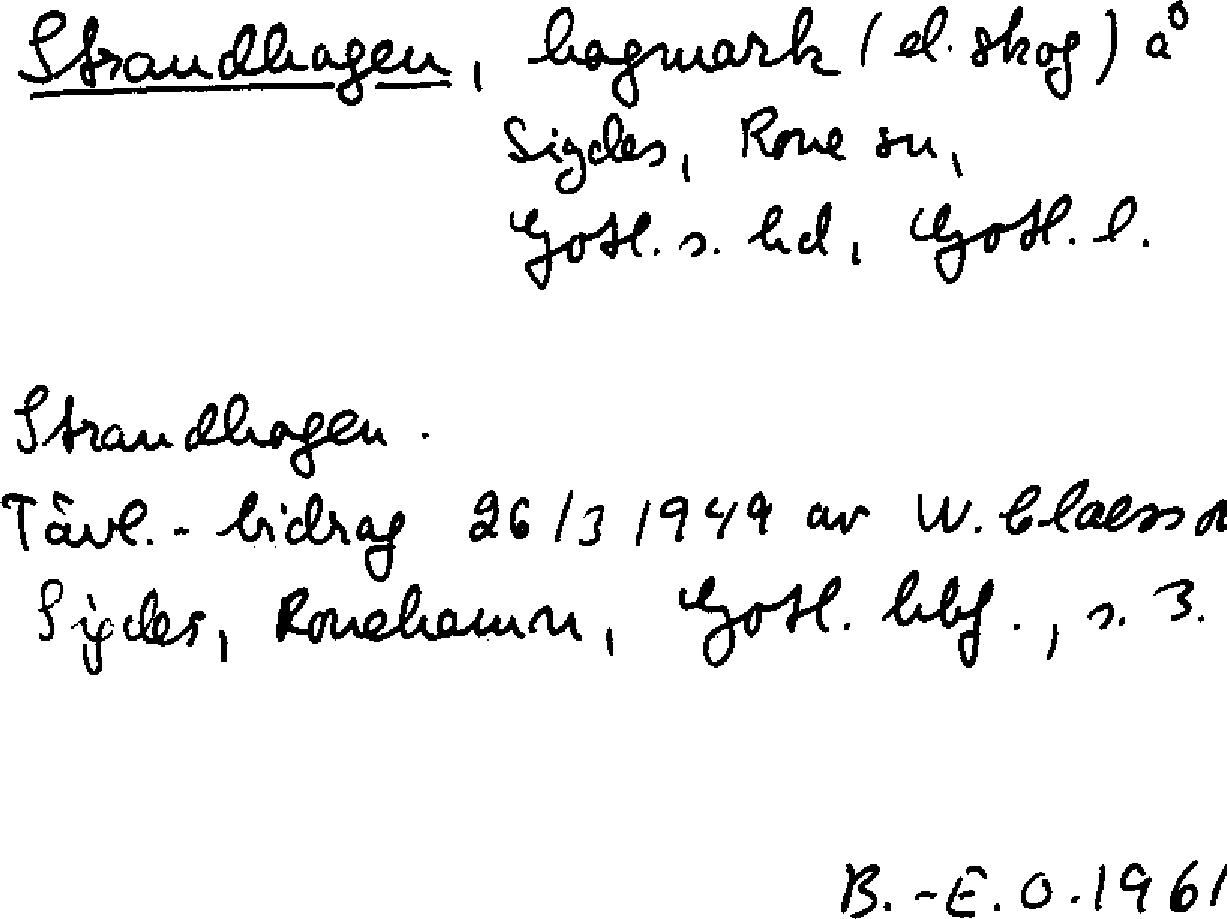 Strandhagen, hagmark (el. skog) å
Sigdes, Rone sn,
Gotl. s. hd, Gotl. l.
Strandhagen.
Tävl.-bidrag 26/3 1949 av W. Claesson
Sigdes, Ronehamn, Gotl. hbf., s. 3.
B.-E. O. 1961